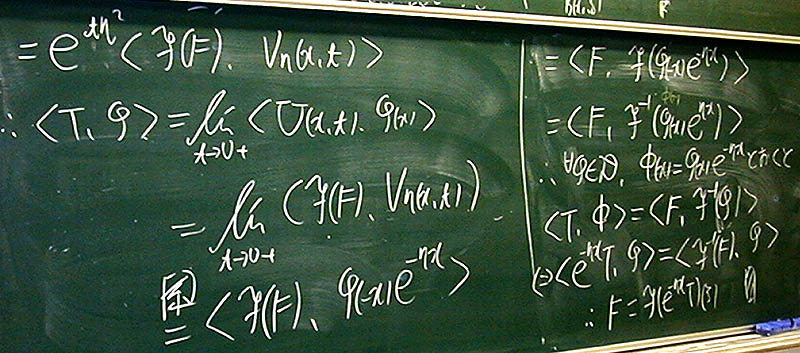 = e^{tη²} <ℱ(F), Vη(x,t)>
∴ <T, φ> = lim_{t→0+} <U(x,t), φ(x)>
= lim_{t→0+} <ℱ(F), Vη(x,t)>
= <ℱ(F), φ(-x)e^{-ηx}>
= <F, ℱ(φ(-x)e^{-ηx})>
= <F, ℱ⁻¹(φ(x)e^{ηx})>
∴ ∀φ∈𝒟, Φ(x)=φ(x)e^{-ηx} とおくと
<T, Φ> = <F, ℱ⁻¹(φ)>
⇔ <e^{-ηx}T, φ> = <ℱ⁻¹(F), φ>
∴ F = ℱ(e^{-ηx}T)(ξ)